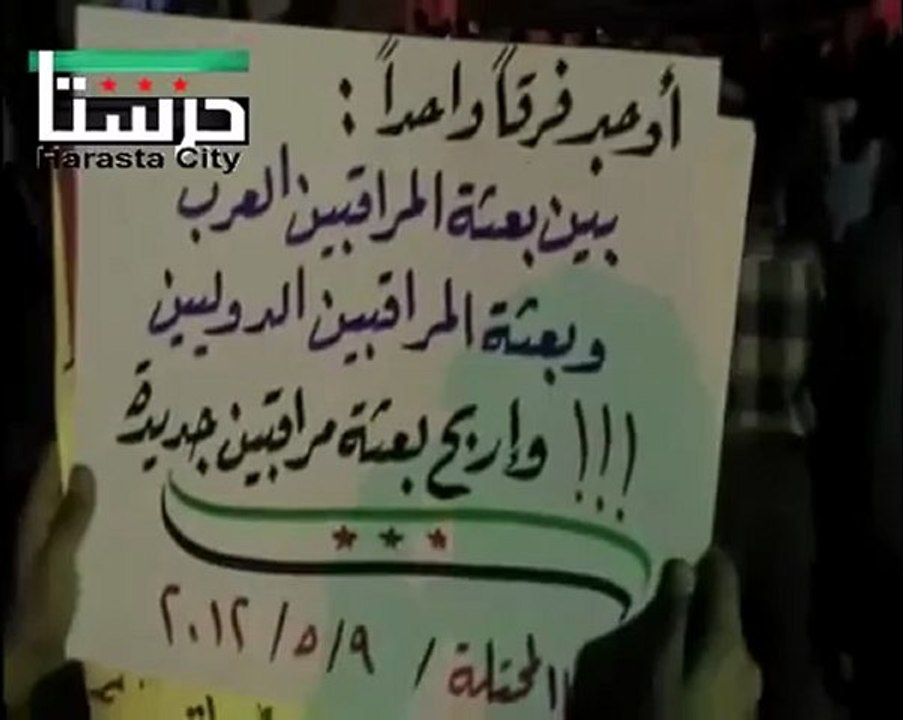 حرستا
Harasta City
أوجد فرقاً واحداً :
بين بعثة المراقبين العرب
وبعثة المراقبين الدوليين
!!! وإربح بعثة مراقبين جديدة
المحتلة / ٩/٥/٢٠١٢